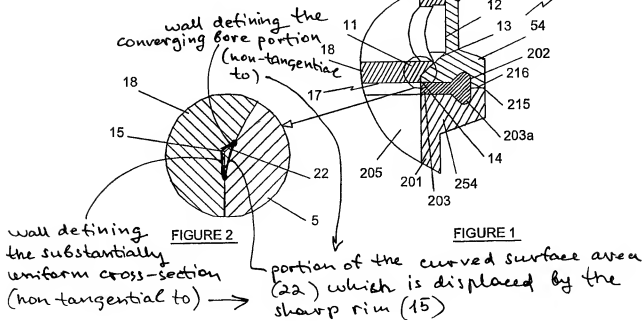 wall defining the
converging bore portion
(non-tangential
to)
11
12
13
54
18
202
216
17
215
203a
14
205
201
203
254
18
15
22
5
FIGURE 2
FIGURE 1
wall defining
the substantially
uniform cross-section
(non tangential to)
portion of the curved surface area
(22) which is displaced by the
sharp rim (15)